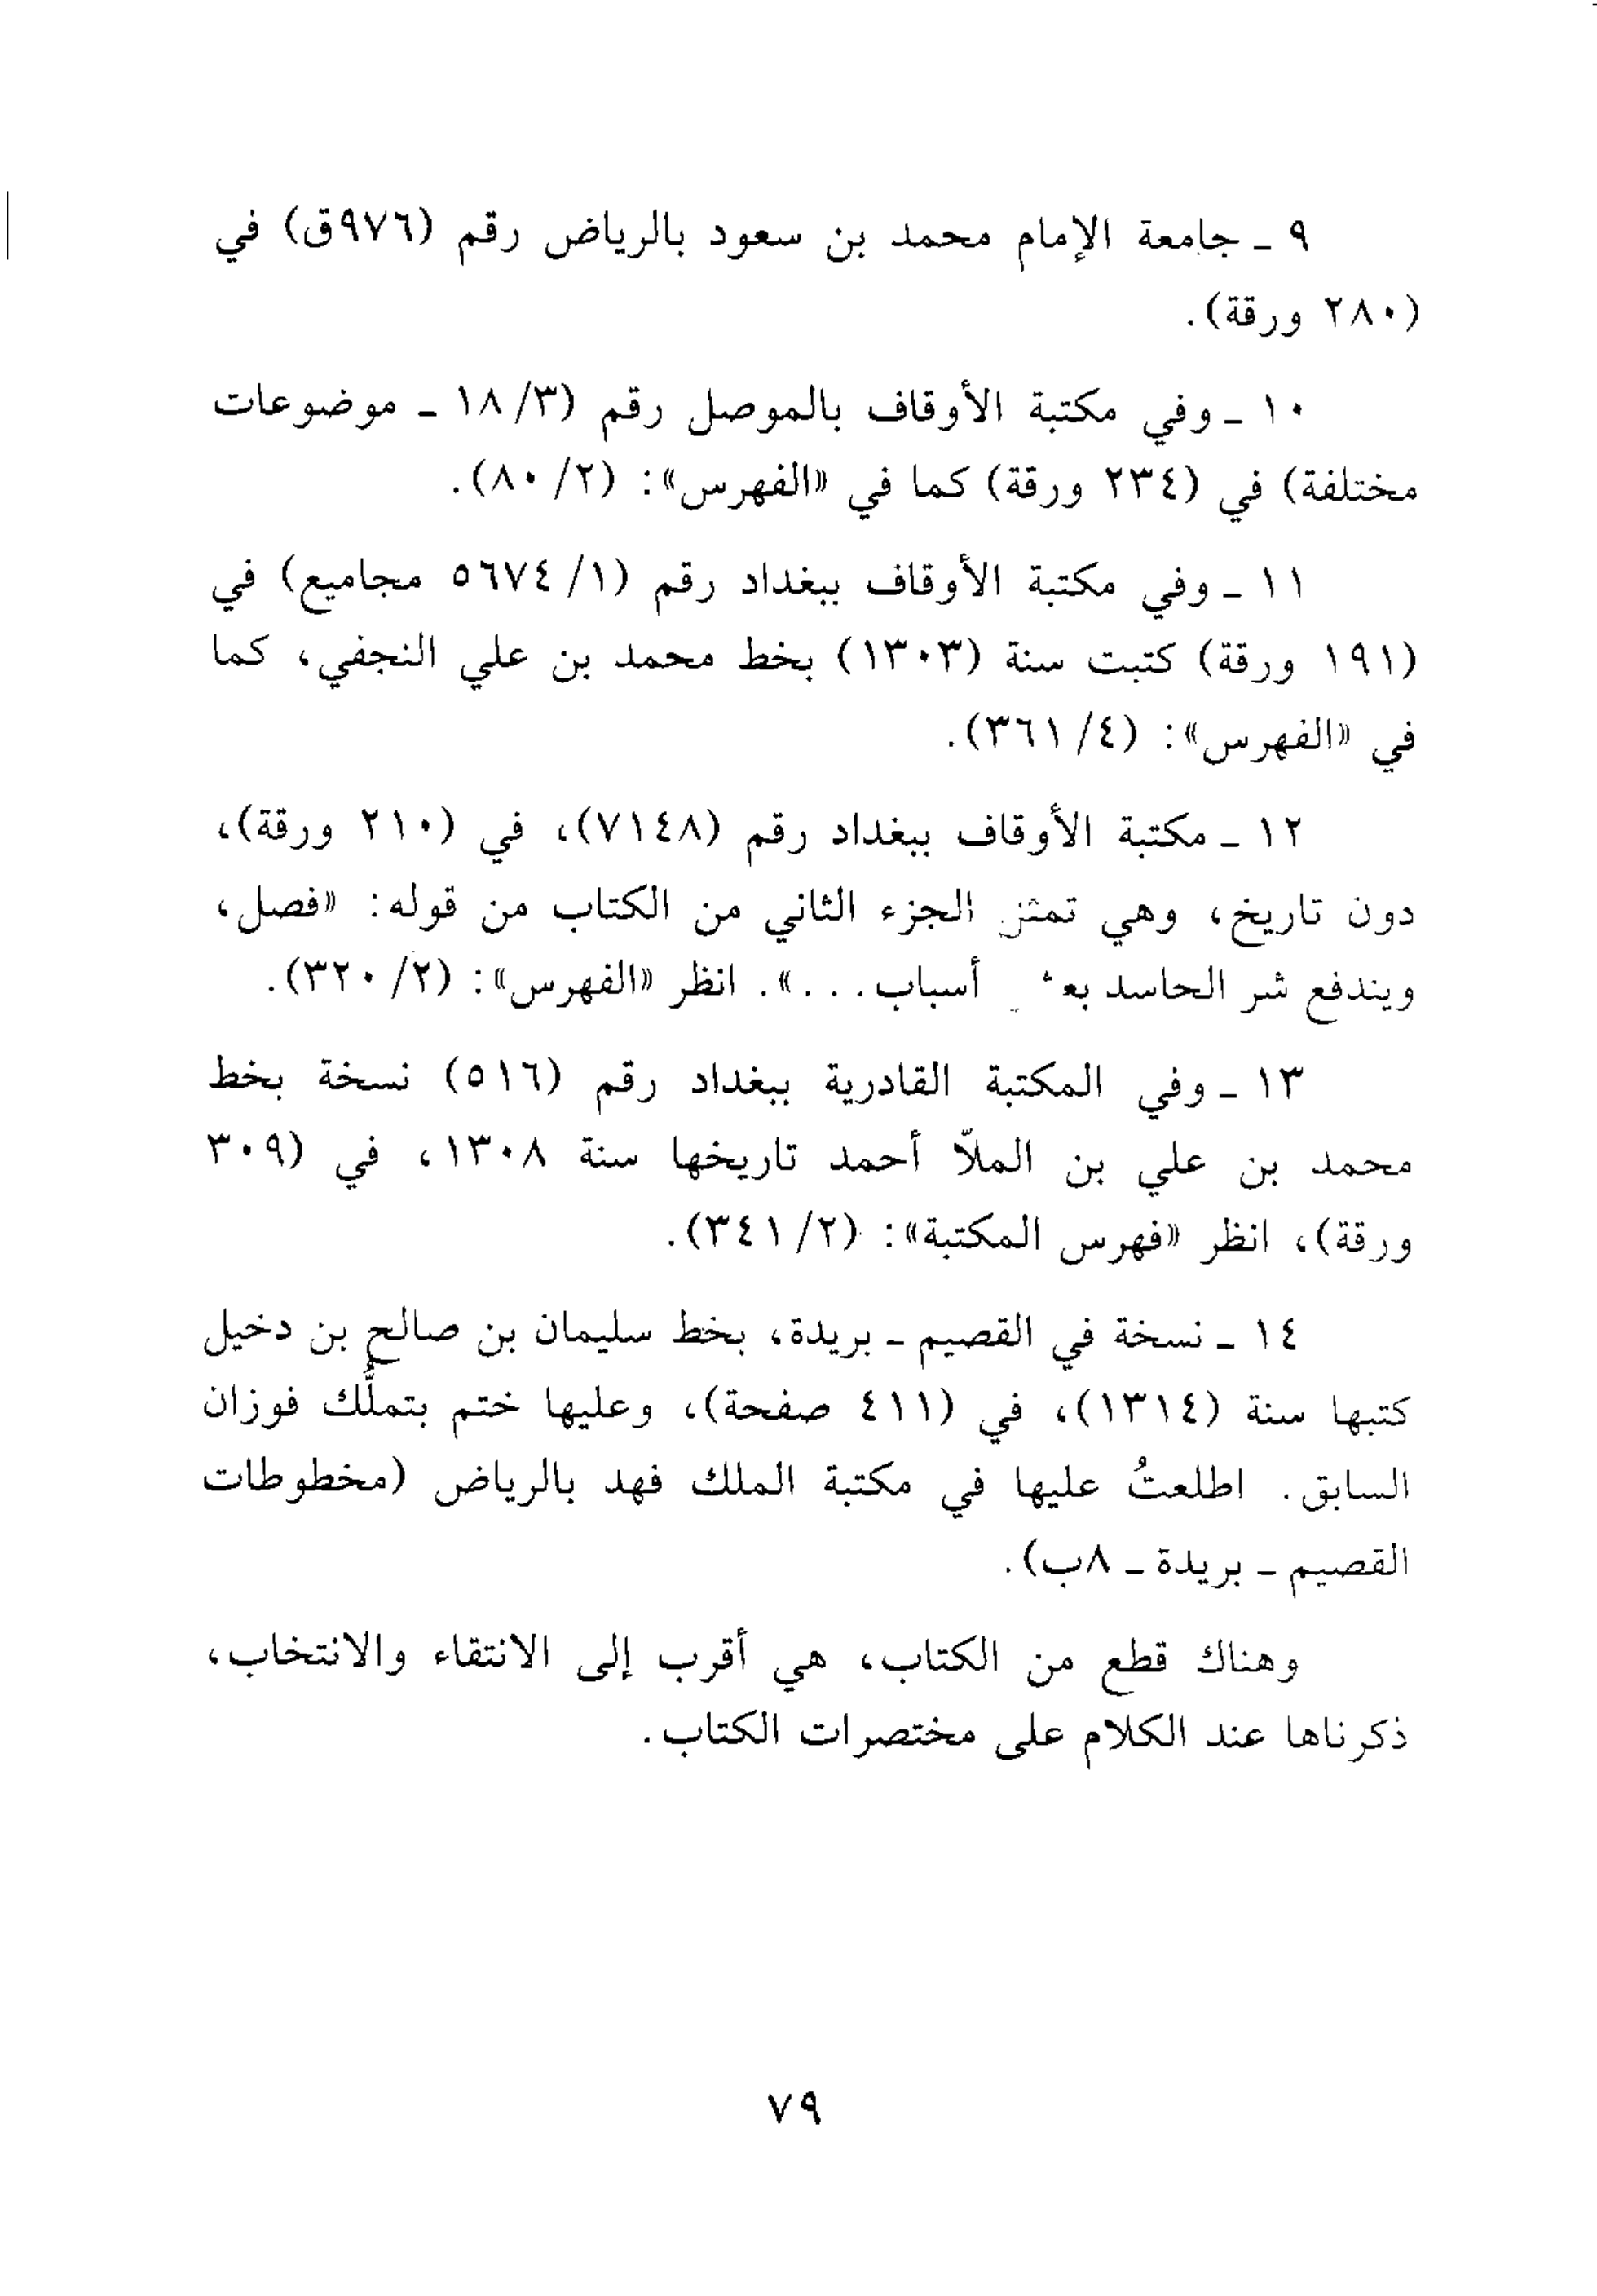 ٩ ـ جامعة الإمام محمد بن سعود بالرياض رقم (٩٧٦ق) في
(٢٨٠ ورقة).
١٠ ـ وفي مكتبة الأوقاف بالموصل رقم (٣/ ١٨ ـ موضوعات
مختلفة) في (٢٣٤ ورقة) كما في «الفهرس»: (٢/ ٨٠).
١١ ـ وفي مكتبة الأوقاف ببغداد رقم (١/ ٥٦٧٤ مجاميع) في
(١٩١ ورقة) كتبت سنة (١٣٠٣) بخط محمد بن علي النجفي، كما
في «الفهرس»: (٤/ ٣٦١).
١٢ ـ مكتبة الأوقاف ببغداد رقم (٧١٤٨)، في (٢١٠ ورقة)،
دون تاريخ، وهي تمثل الجزء الثاني من الكتاب من قوله: «فصل،
ويندفع شر الحاسد أسباب...». انظر «الفهرس»: (٢/ ٣٢٠).
١٣ ـ وفي المكتبة القادرية ببغداد رقم (٥١٦) نسخة بخط
محمد بن علي بن الملاّ أحمد تاريخها سنة ١٣٠٨، في (٣٠٩
ورقة)، انظر «فهرس المكتبة»: (٢/ ٣٤١).
١٤ ـ نسخة في القصيم ـ بريدة، بخط سليمان بن صالح بن دخيل
كتبها سنة (١٣١٤)، في (٤١١ صفحة)، وعليها ختم بتملُّك فوزان
السابق. اطلعتُ عليها في مكتبة الملك فهد بالرياض (مخطوطات
القصيم ـ بريدة ـ ٨ب).
وهناك قطع من الكتاب، هي أقرب إلى الانتقاء والانتخاب،
ذكرناها عند الكلام على مختصرات الكتاب.
٧٩